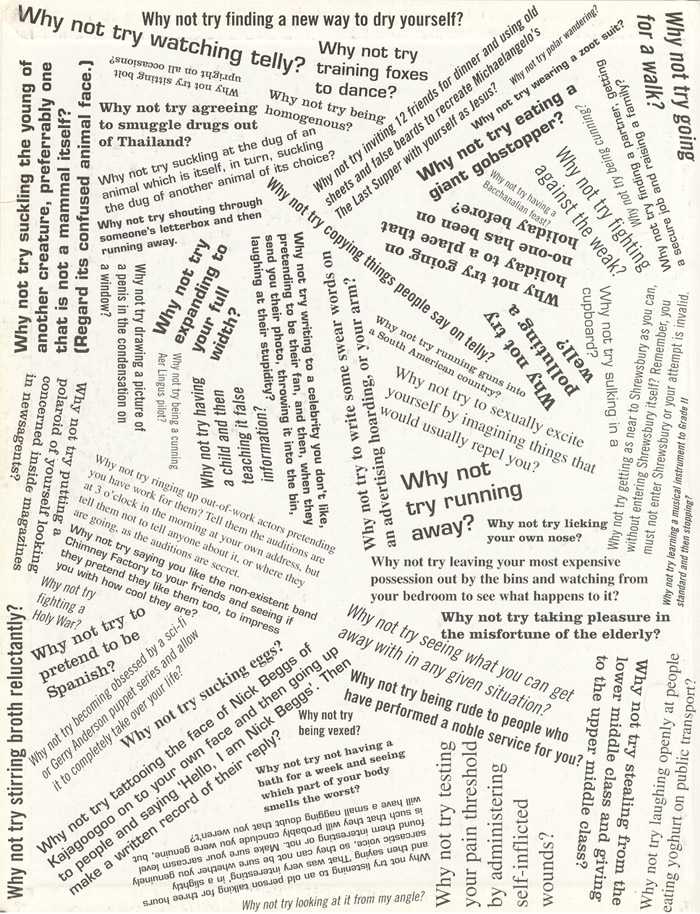 Why not try finding a new way to dry yourself?
Why not try watching telly?
Why not try
training foxes
to dance?
Why not try sitting bolt
upright on all occasions?
Why not try agreeing
to smuggle drugs out
of Thailand?
Why not try being
homogenous?
Why not try suckling the young of
another creature, preferably one
that is not a mammal itself?
(Regard its confused animal face.)
Why not try suckling at the dug of an
animal which is itself, in turn, suckling
the dug of another animal of its choice?
Why not try shouting through
someone's letterbox and then
running away.
Why not try inviting 12 friends for dinner and using old
sheets and false beards to recreate Michaelangelo's
The Last Supper with yourself as Jesus?
Why not try polar wandering?
Why not try wearing a zoot suit?
Why not try going
for a walk?
Why not try eating a
giant gobstopper?
Why not try being cunning?
Why not try finding a partner, getting
a secure job and raising a family?
Why not try having a
Bacchanalian feast?
Why not try fighting
against the weak?
Why not try going on
holiday to a place that
no-one has been on
holiday before?
Why not try copying things people say on telly?
Why not try
expanding to
your full
width?
Why not try drawing a picture of
a penis in the condensation on
a window?
Why not try being a cunning
Aer Lingus pilot?
Why not try having
a child and then
teaching it false
information?
Why not try writing to a celebrity you don't like,
pretending to be their fan, and then, when they
send you their photo, throwing it into the bin,
laughing at their stupidity?
Why not try to write some swear words on
an advertising hoarding, or your arm?
Why not try running guns into
a South American country?
Why not try
polluting a
well?
Why not try sulking in a
cupboard?
Why not try getting as near to Shrewsbury as you can,
without entering Shrewsbury itself? Remember, you
must not enter Shrewsbury or your attempt is invalid.
Why not try learning a musical instrument to Grade II
standard and then stopping?
Why not try to sexually excite
yourself by imagining things that
would usually repel you?
Why not try putting a
polaroid of yourself looking
concerned inside magazines
in newsagents?
Why not try ringing up out-of-work actors pretending
you have work for them? Tell them the auditions are
at 3 o'clock in the morning at your own address, but
tell them not to tell anyone about it, or where they
are going, as the auditions are secret.
Why not
try running
away?
Why not try licking
your own nose?
Why not try saying you like the non-existent band
Chimney Factory to your friends and seeing if
they pretend they like them too, to impress
you with how cool they are?
Why not try leaving your most expensive
possession out by the bins and watching from
your bedroom to see what happens to it?
Why not try
fighting a
Holy War?
Why not try taking pleasure in
the misfortune of the elderly?
Why not try stirring broth reluctantly?
Why not try to
pretend to be
Spanish?
Why not try seeing what you can get
away with in any given situation?
Why not try becoming obsessed by a sci-fi
or Gerry Anderson puppet series and allow
it to completely take over your life?
Why not try sucking eggs?
Why not try being rude to people who
have performed a noble service for you?
Why not try tattooing the face of Nick Beggs of
Kajagoogoo on to your own face and then going up
to people and saying 'Hello, I am Nick Beggs'. Then
make a written record of their reply?
Why not try
being vexed?
Why not try not having a
bath for a week and seeing
which part of your body
smells the worst?
Why not try testing
your pain threshold
by administering
self-inflicted
wounds?
Why not try stealing from the
lower middle class and giving
to the upper middle class?
Why not try laughing openly at people
eating yoghurt on public transport?
Why not try listening to an old person talking for three hours
and then saying 'That was very interesting', in a slightly
sarcastic voice, so they can not be sure whether you genuinely
found them interesting or not. Make sure your sarcasm level
is such that they will probably conclude you were genuine, but
will have a small nagging doubt that you weren't?
Why not try looking at it from my angle?